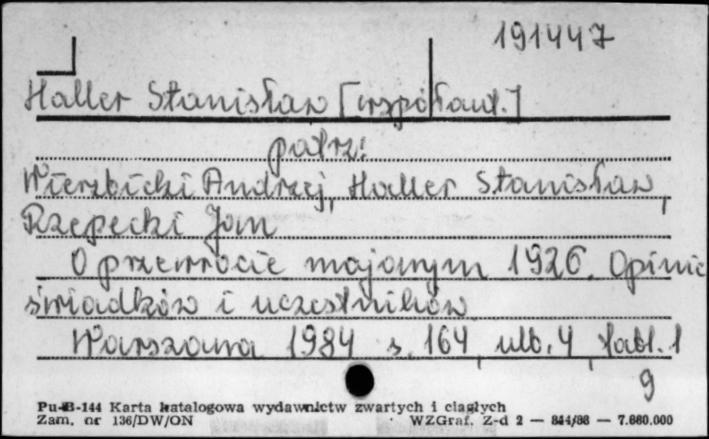 191447
Haller Stanisław [współaut.]
patrz:
Wierzbicki Andrzej, Haller Stanisław,
Rzepecki Jan
O przewrocie majowym 1926. Opinie
świadków i uczestników
Warszawa 1984 s. 164, ulb. 4, tabl. 1
9
Pu-B-144 Karta katalogowa wydawnictw zwartych i ciągłych
Zam. nr 136/DW/ON WZGraf. Z-d 2 — 844/86 — 7.660.000